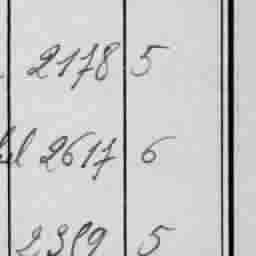 2178 5
2617 6
2389 5